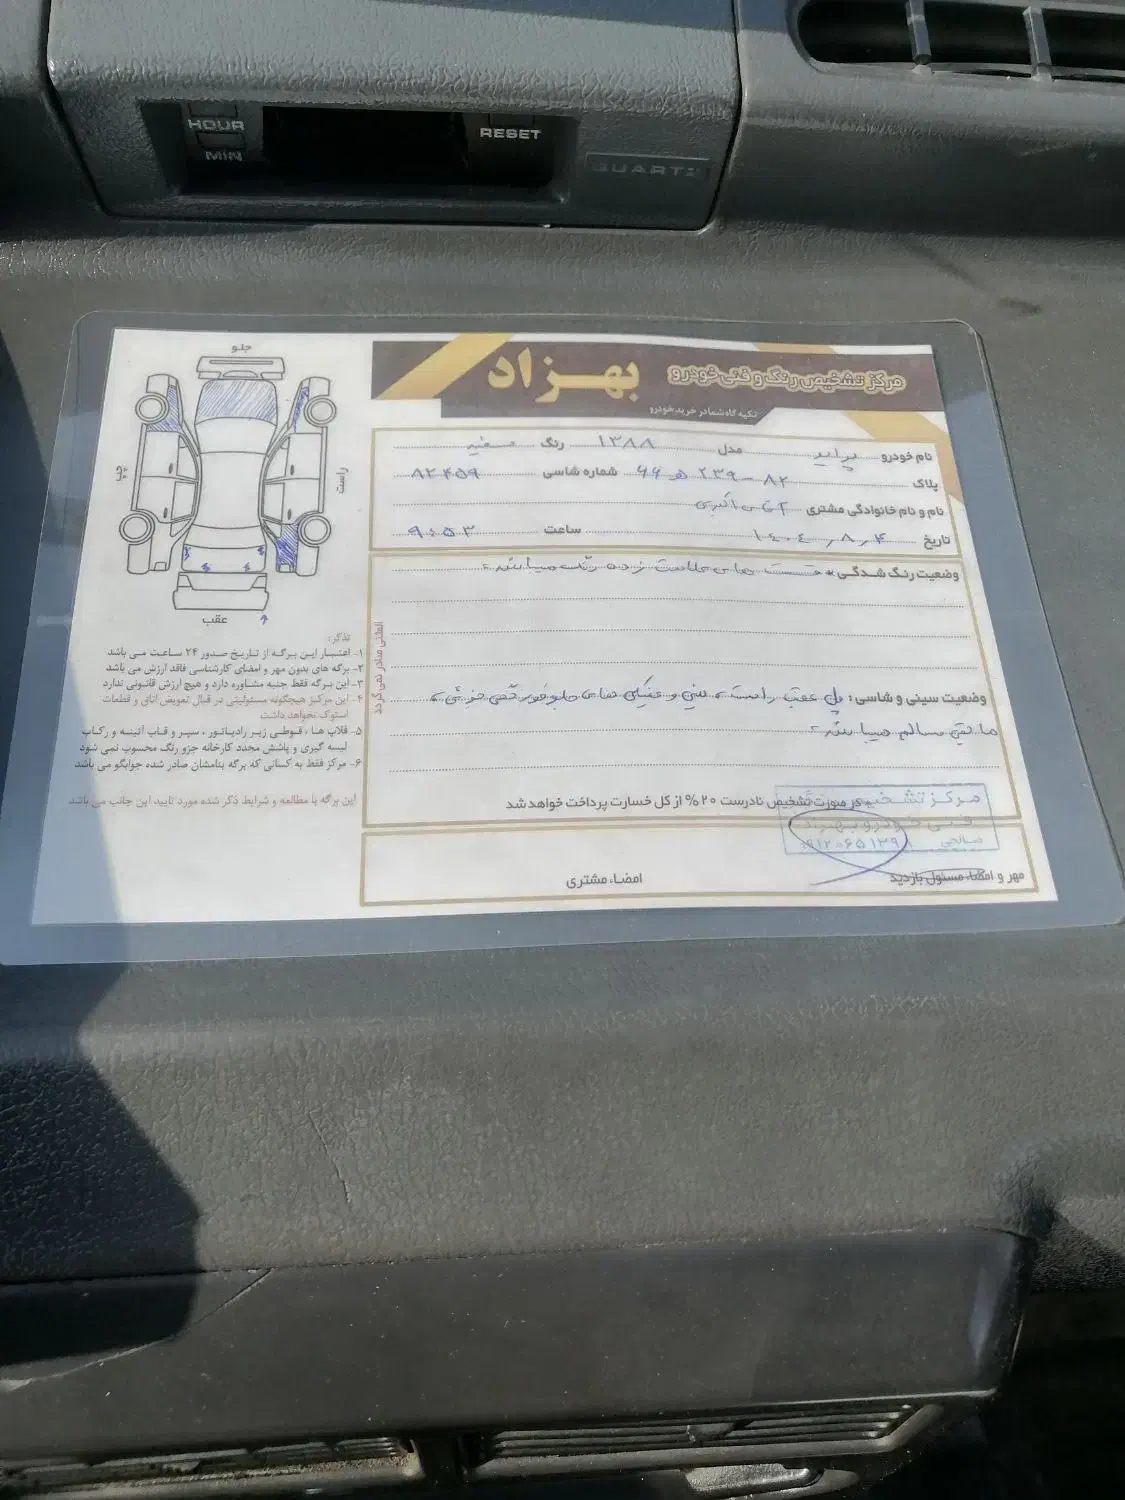 HOUR
MIN
RESET
QUARTZ
مرکز تشخیص رنگ و فنی خودرو بهزاد
تکیه گاه شما در خرید خودرو
نام خودرو پراید مدل ۱۳۸۸ رنگ سفید
پلاک ۸۲ - ۲۳۹ ه ۶۶ شماره شاسی ۸۲۴۵۹
نام و نام خانوادگی مشتری آقای اکبری
تاریخ ۱۴۰۴/۸/۴ ساعت ۹:۵۳
وضعیت رنگ شدگی: قسمت های علامت زده رنگ میباشد.
وضعیت سینی و شاسی: پل عقب راست، سینی و فنیکی های جلو فورقمی خوردگی،
مابقی سالم میباشد.
در صورت تشخیص نادرست ۲۰% از کل خسارت پرداخت خواهد شد
مرکز تشخیص
فنی خودرو بهزاد
صالحی
مهر و امضاء مسئول بازدید
امضاء مشتری
المثنی صادر نمی گردد
جلو
چپ
راست
عقب
تذکر:
۱- اعتبار این برگه از تاریخ صدور ۲۴ ساعت می باشد
۲- برگه های بدون مهر و امضای کارشناسی فاقد ارزش می باشد
۳- این برگه فقط جنبه مشاوره دارد و هیچ ارزش قانونی ندارد
۴- این مرکز هیچگونه مسئولیتی در قبال تعویض اتاق و قطعات
استوک نخواهد داشت
۵- قلاب ها ، قوطی زیر رادیاتور ، سپر و قاب آئینه و رکاب
لیسه گیری و پاشش مجدد کارخانه جزو رنگ محسوب نمی شود
۶- مرکز فقط به کسانی که برگه بنامشان صادر شده جوابگو می باشد
این برگه با مطالعه و شرایط ذکر شده مورد تایید این جانب می باشد